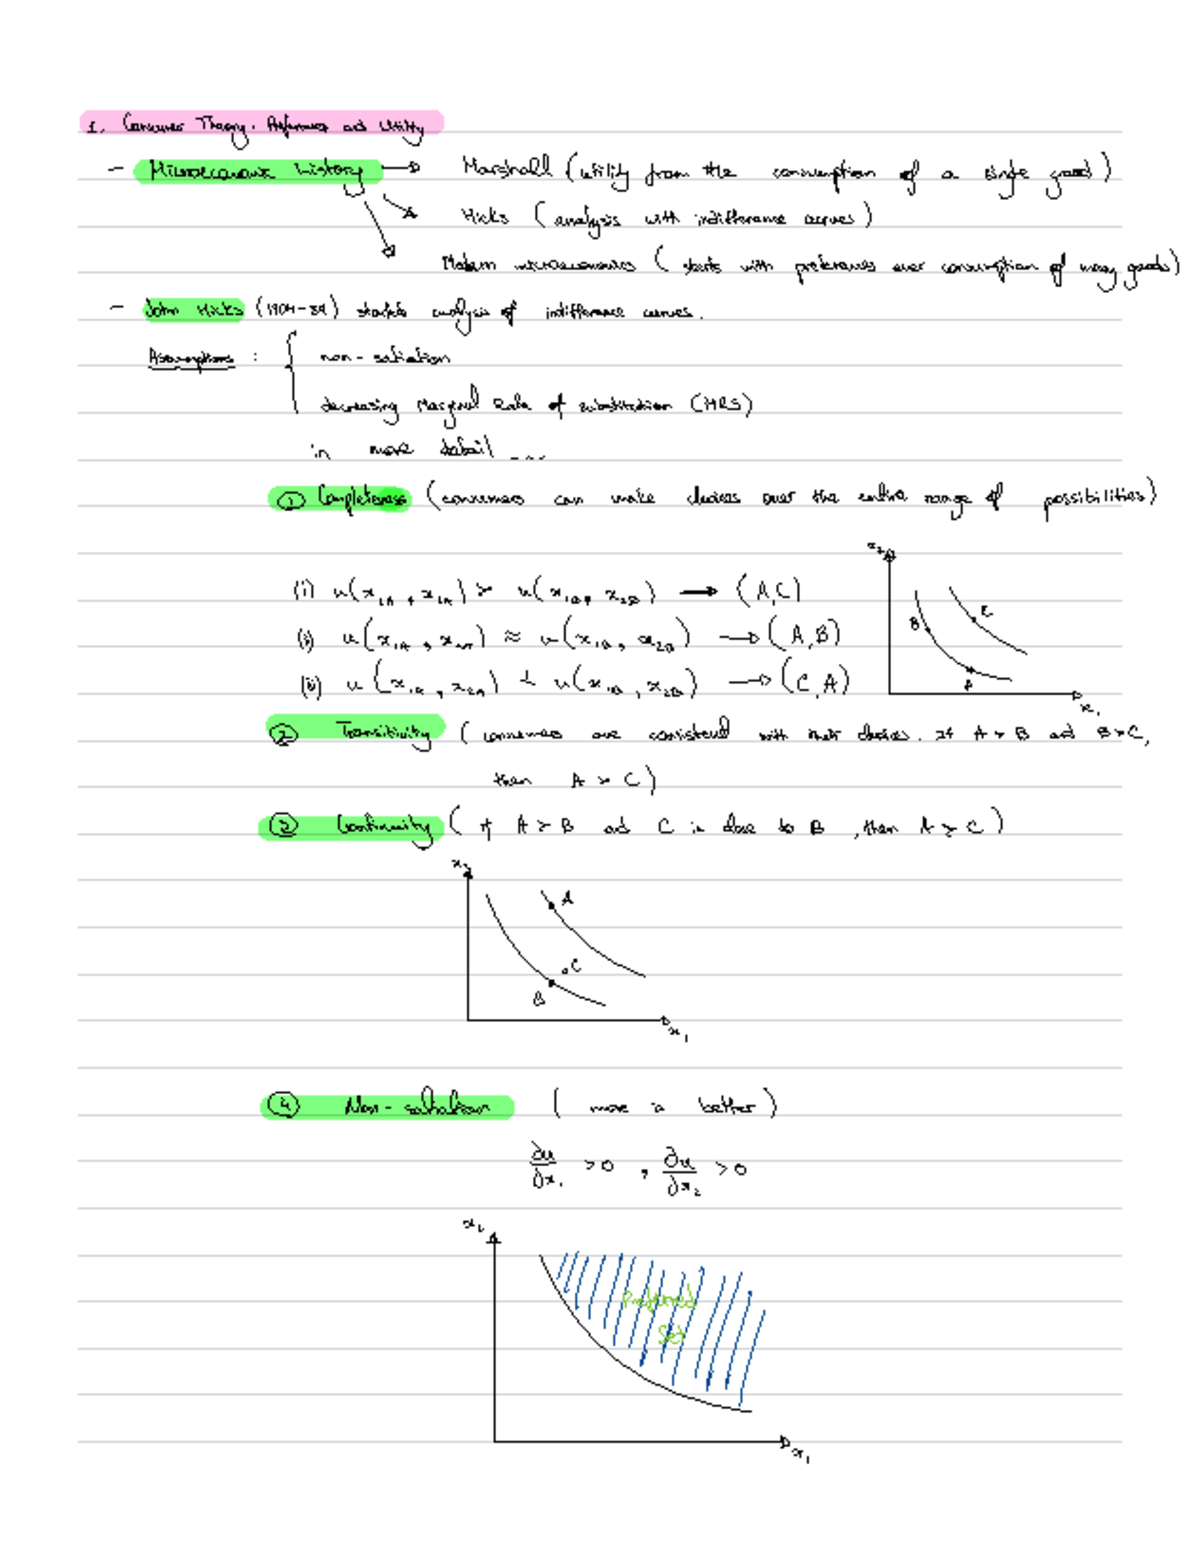 1. Consumer Theory. Preferences and Utility
- Microeconomic history → Marshall (utility from the consumption of a single good)
→ Hicks (analysis with indifference curves)
→ Modern microeconomics (starts with preferences over consumption of many goods)
- John Hicks (1904-89) started analysis of indifference curves.
Assumptions : { non-satiation
decreasing Marginal Rate of substitution (MRS)
in more detail ...
① Completeness (consumers can make choices over the entire range of possibilities)
x₂
(i) u(x₁A, x₂A) > u(x₁B, x₂B) → (A,C)
C
B
(ii) u(x₁A, x₂A) ≈ u(x₁B, x₂B) → (A,B)
u(x₁A, x₂A) u(x₁B, x₂B) → (C,A)
A
x₁
② Transitivity (consumers are consistent with their choices. If A > B and B > C,
then A > C)
③ Continuity (if A > B and C is close to B, then A > C)
x₂
A
C
B
x₁
④ Non-satiation (more is better)
∂u/∂x₁ >0 , ∂u/∂x₂ >0
x₂
Preferred
Set
x₁